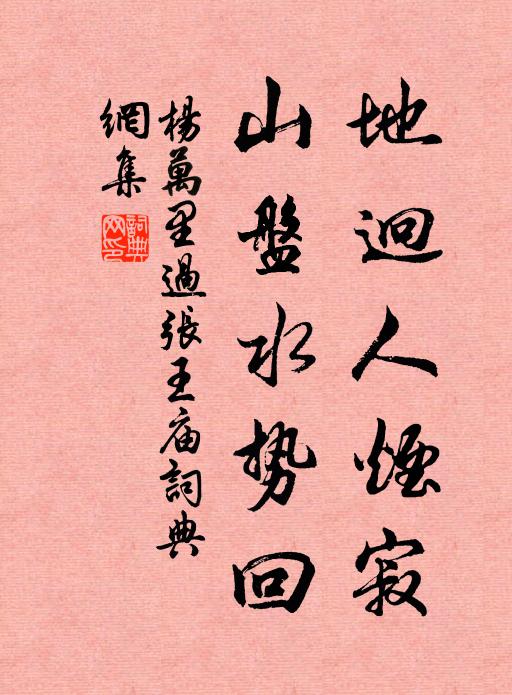 地迥人煙寂
山盤水势回
楊萬里過張王庙詞典
網集
詞典网印